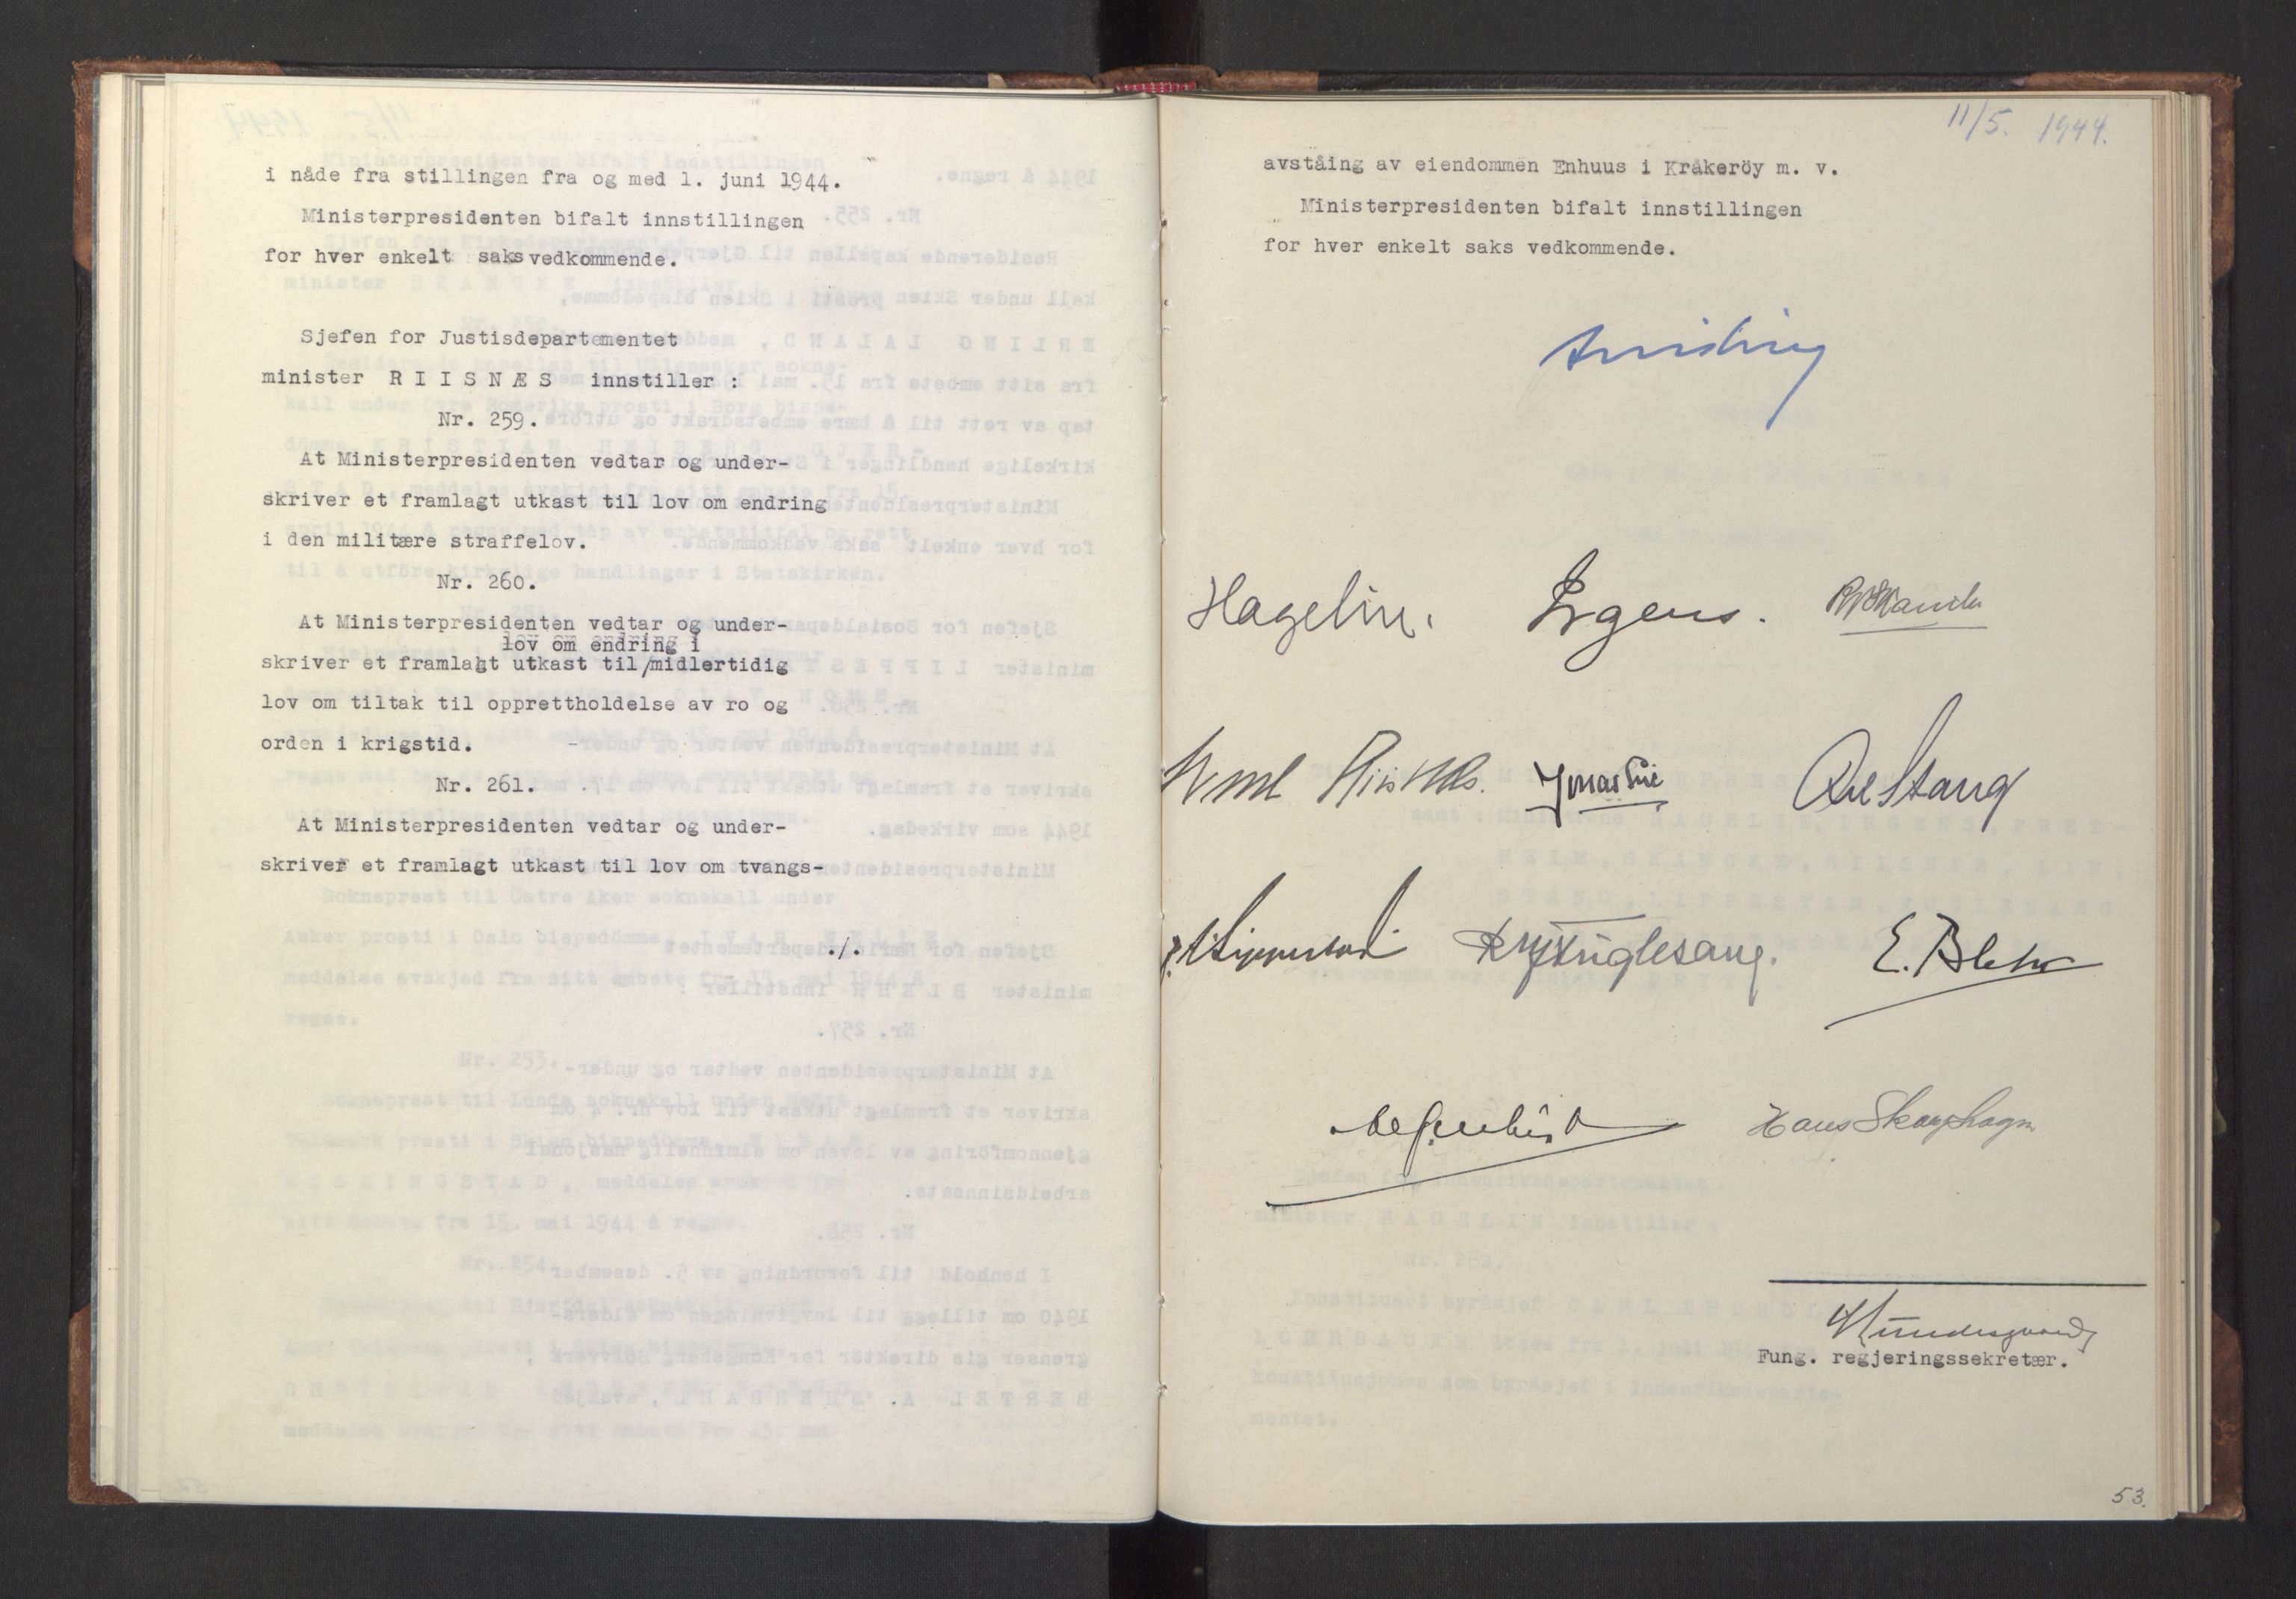 i nåde fra stillingen fra og med 1. juni 1944.
Ministerpresidenten bifalt innstillingen
for hver enkelt saks vedkommende.
Sjefen for Justisdepartementet
minister R I I S N Æ S innstiller :
Nr. 259.
At Ministerpresidenten vedtar og under-
skriver et framlagt utkast til lov om endring
i den militære straffelov.
Nr. 260.
At Ministerpresidenten vedtar og under-
lov om endring i
skriver et framlagt utkast til/midlertidig
lov om tiltak til opprettholdelse av ro og
orden i krigstid.
Nr. 261.
At Ministerpresidenten vedtar og under-
skriver et framlagt utkast til lov om tvangs-
./.
11/5. 1944.
avståing av eiendommen Enhuus i Kråkeröy m. v.
Ministerpresidenten bifalt innstillingen
for hver enkelt saks vedkommende.
Quisling
Hagelin. Irgens. R Skancke
Riisnæs. Jonas Lie Axel Stang
Lippestad R J Fuglesang. E. Blehr
Hans Skarphagen
Fung. regjeringssekretær.
53.